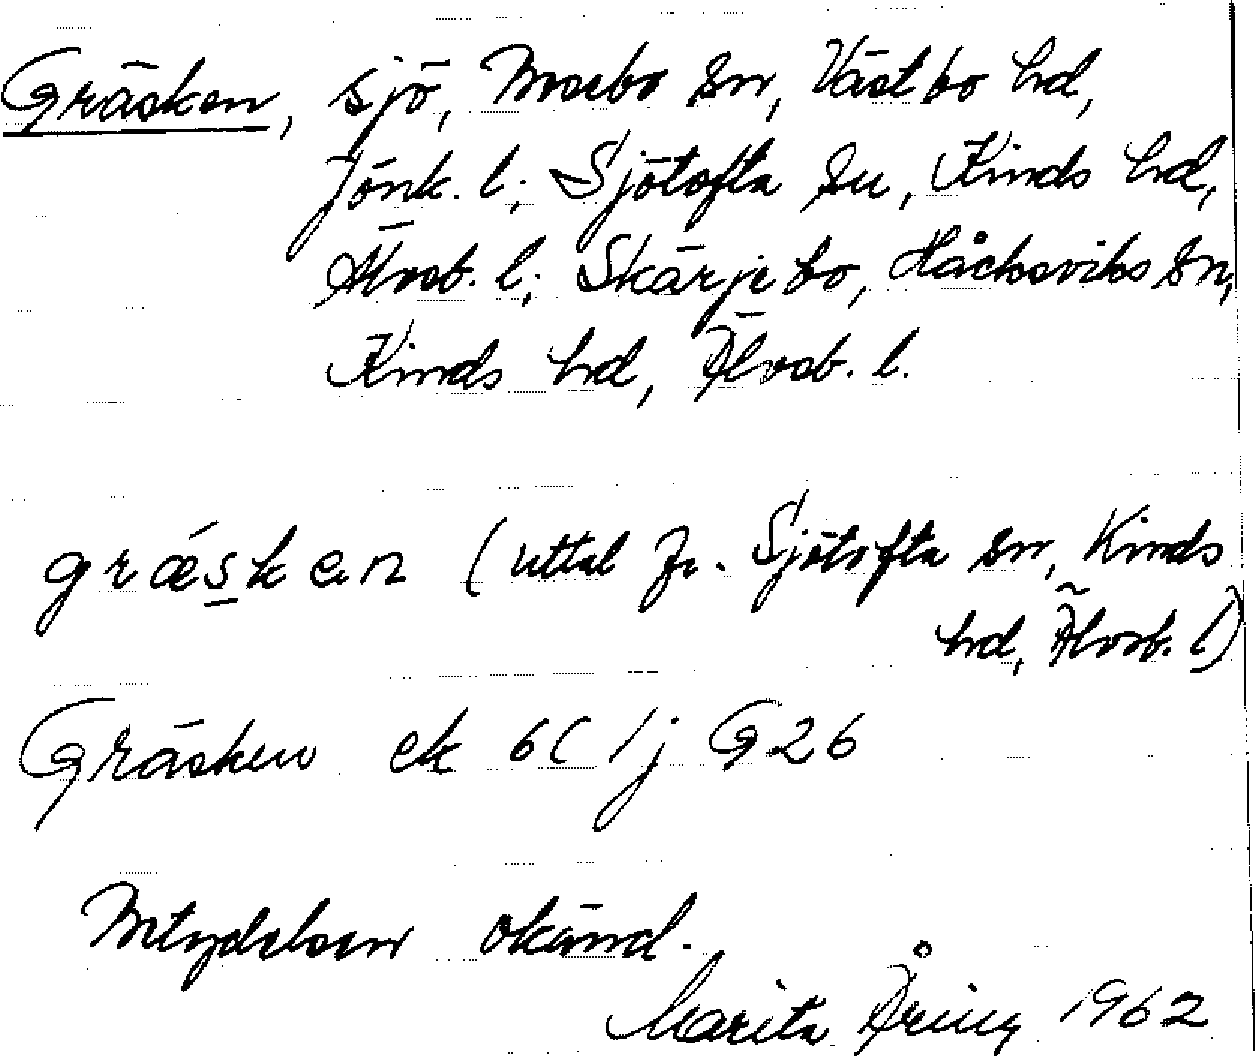 Gräsken, sjö, Mosebo sn, Västbo hd,
Jönk. l; Sjötofta sn, Kinds hd,
Älvsb. l; Skärjebo, Håcksviks sn,
Kinds hd, Älvsb. l.
grǽsken (uttal fr. Sjötofta sn, Kinds
hd, Älvsb. l)
Gräsken ek 6C 1j G26
Betydelsen okänd.
Marita 1962